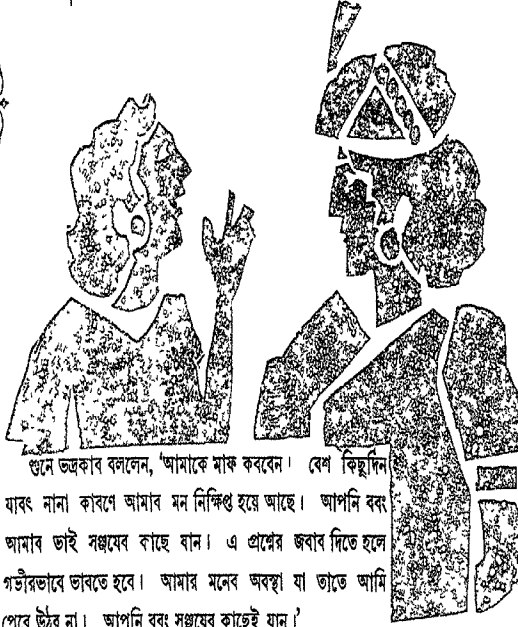 শুনে ভদ্রকাব বললেন, ‘আমাকে মাফ কববেন। বেশ কিছুদিন
যাবৎ নানা কাবণে আমাব মন নিক্ষিপ্ত হয়ে আছে। আপনি ববং
আমাব ভাই সঞ্জযেব কাছে যান। এ প্রশ্নের জবাব দিতে হলে
গভীরভাবে ভাবতে হবে। আমার মনেব অবস্থা যা তাতে আমি
পেবে উঠব না। আপনি ববং সঞ্জযের কাছেই যান।’